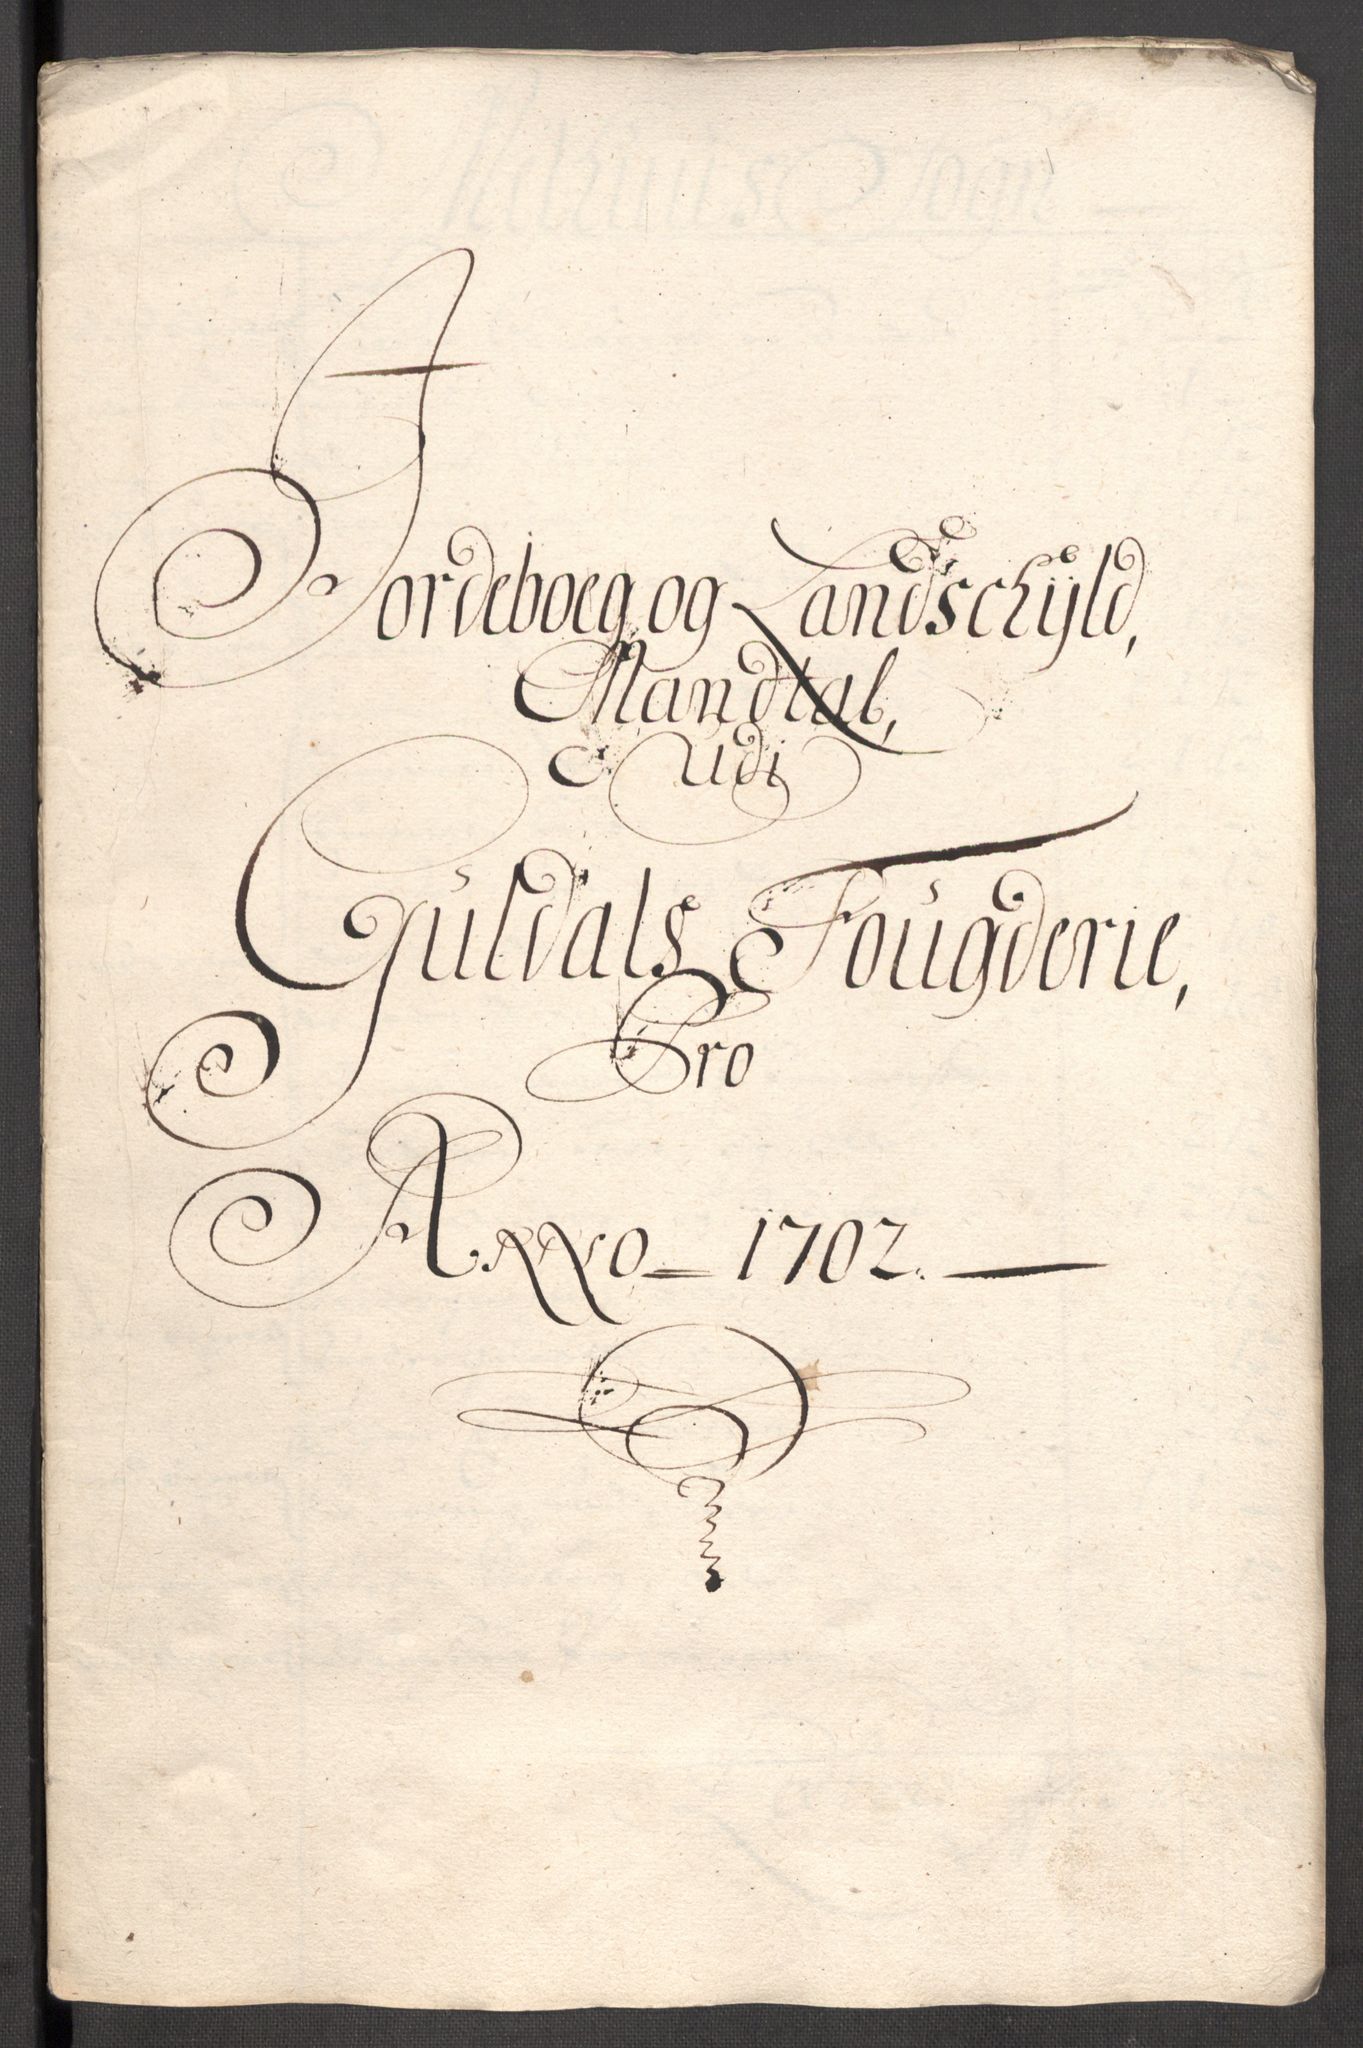 Jordeboeg og Landschÿld,
Mandtal,
Udi
Guldals Fougderie,
Pro
Anno 1702.